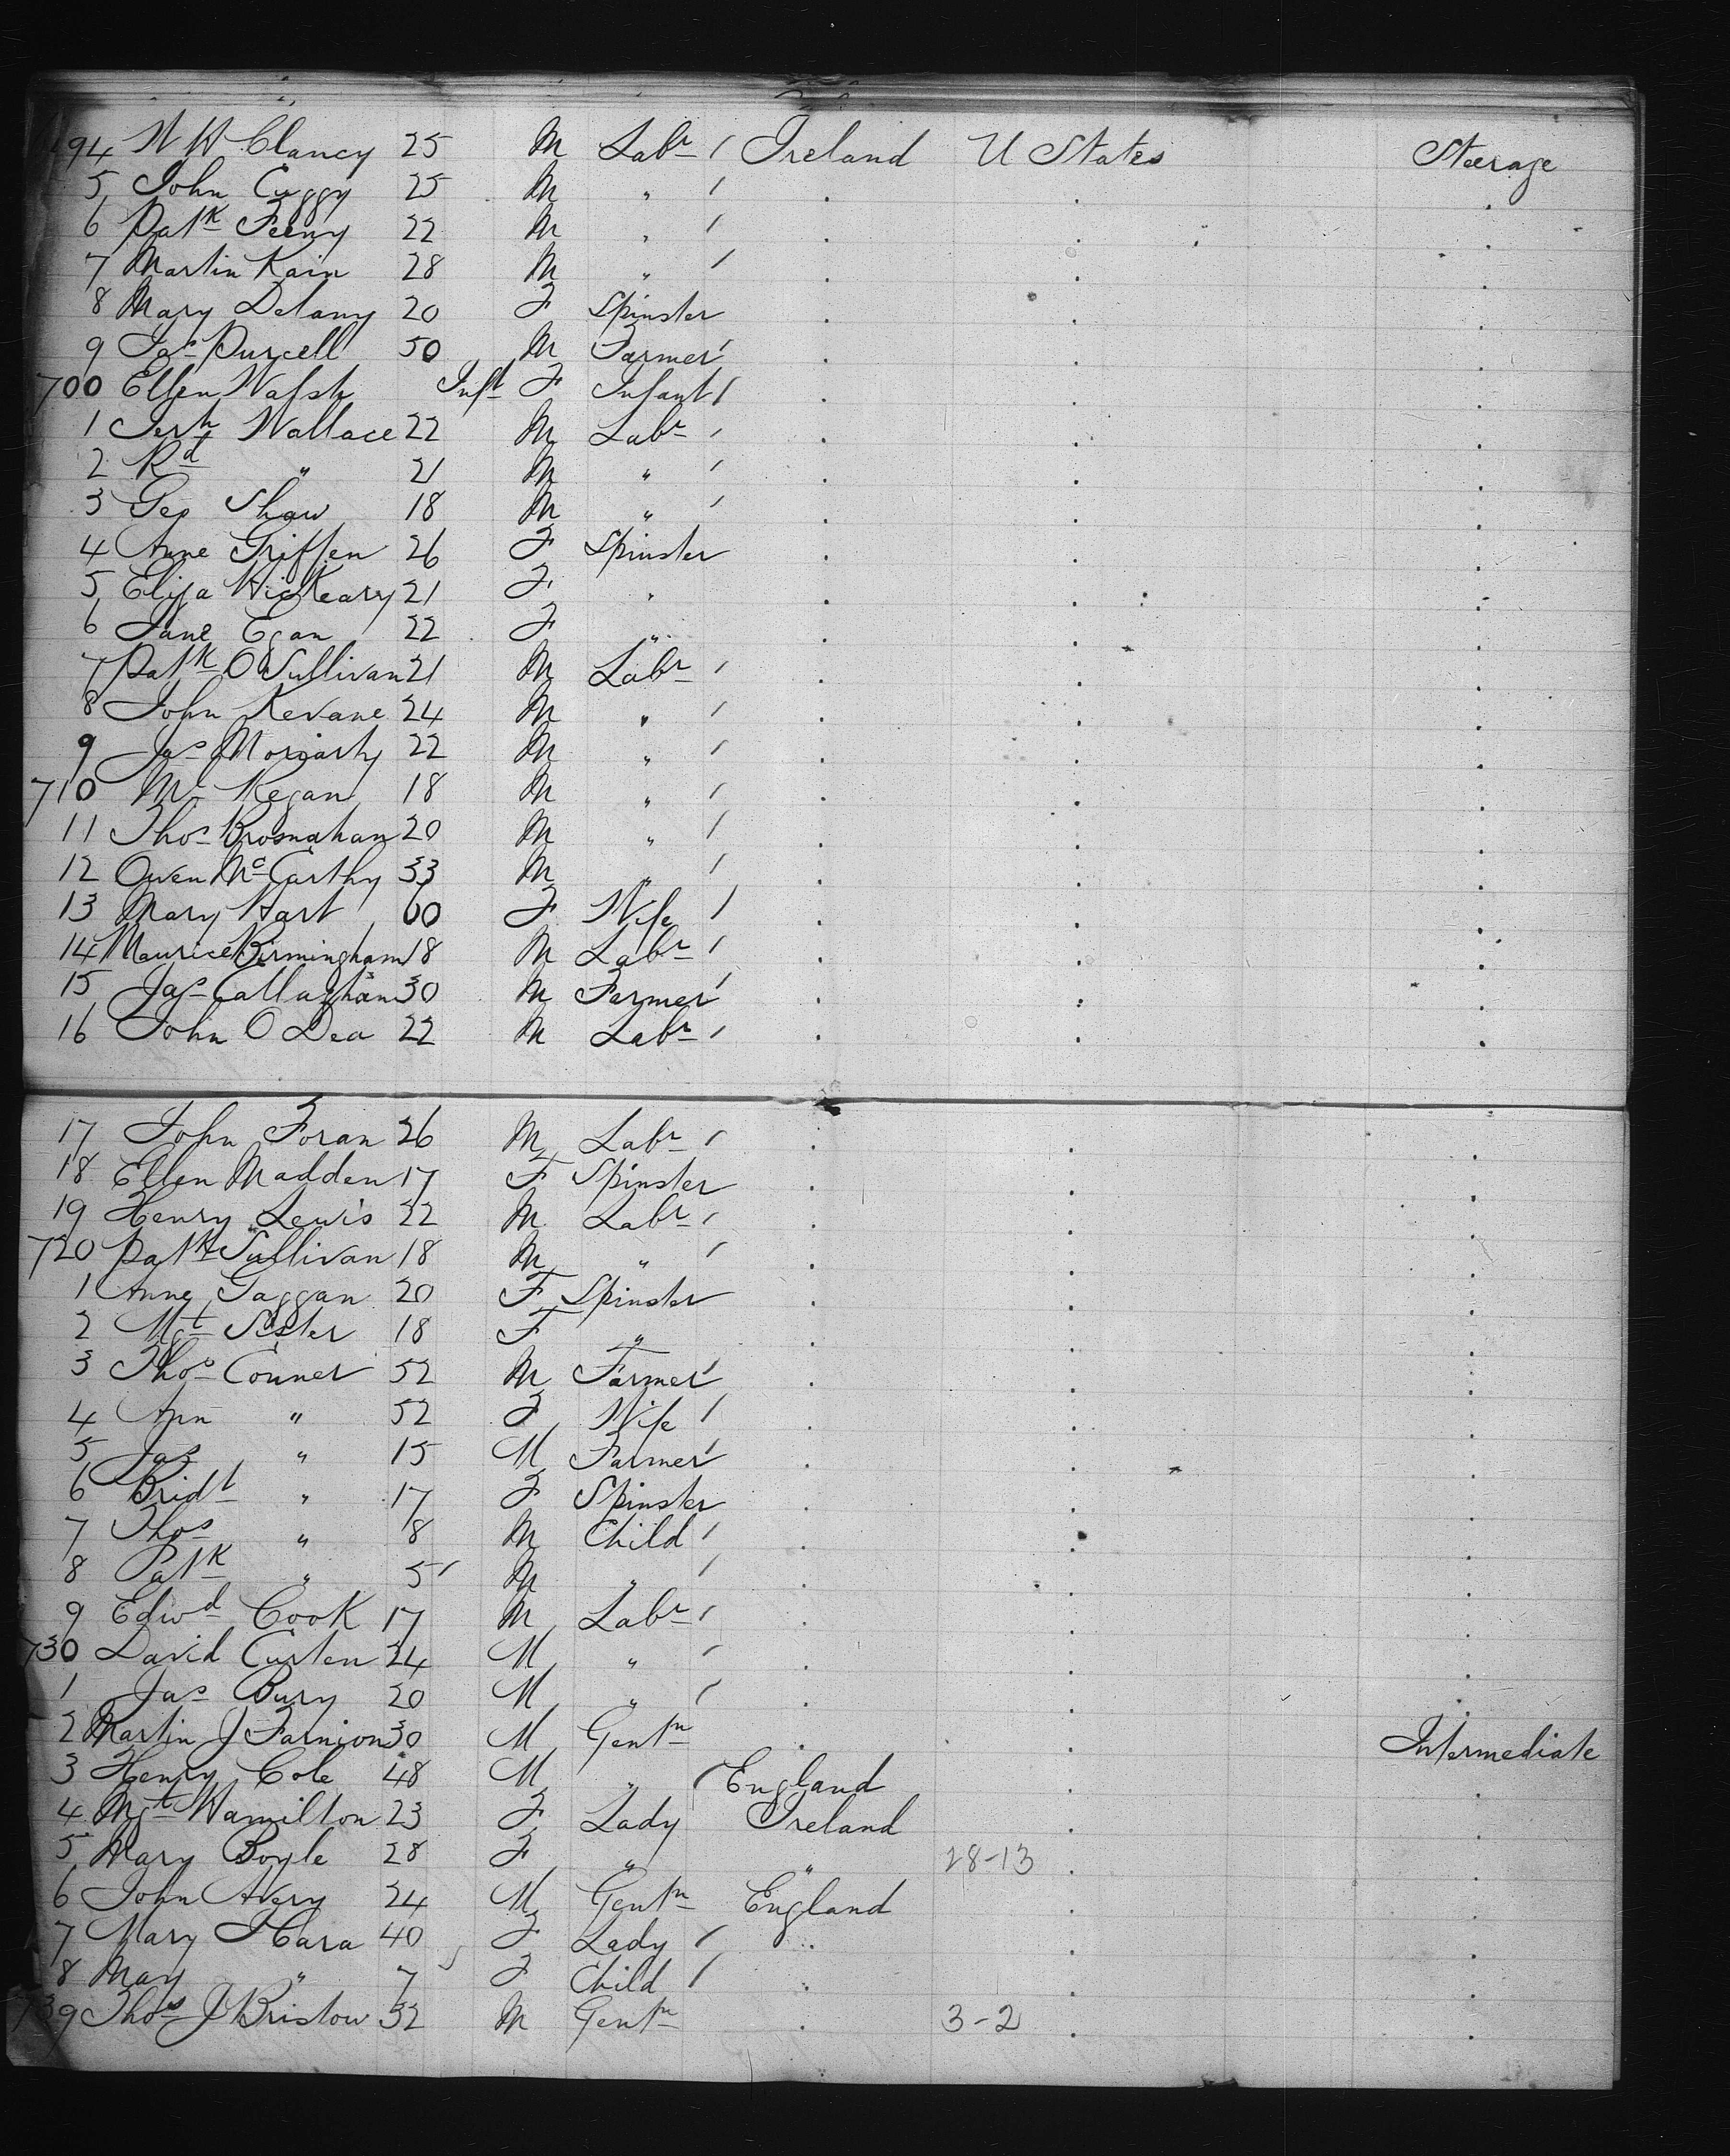 694 W H Clancy 25 M Labr / Ireland U States Steerage
5 John Cuggy 25 M " / . . .
6 Patk Feeny 22 M " / . . .
7 Martin Kain 28 M " / . . .
8 Mary Delany 20 F Spinster . . .
9 Jas Purcell 50 M Farmer / . . .
700 Ellen Walsh Inft F Infant / . . .
1 Jerh Wallace 22 M Labr / . . .
2 Rd " 21 M " / . . .
3 Geo Shaw 18 M " / . . .
4 Anne Griffen 26 F Spinster . . .
5 Eliza Hickeary 21 F " . . .
6 Jane Egan 22 F " . . .
7 Patk O'Sullivan 21 M Labr / . . .
8 John Kevane 24 M " / . . .
9 Jas Moriarty 22 M " / . . .
710 Ml Regan 18 M " / . . .
11 Thos Brosnahan 20 M " / . . .
12 Owen McCarthy 33 M " / . . .
13 Mary Hart 60 F Wife / . . .
14 Maurice Birmingham 18 M Labr / . . .
15 Jas Callaghan 30 M Farmer / . . .
16 John O Dea 22 M Labr / . . .
17 John Foran 26 M Labr / . . .
18 Ellen Madden 17 F Spinster . . .
19 Henry Lewis 22 M Labr / . . .
720 Patk Sullivan 18 M " / . . .
1 Anne Gaggan 20 F Spinster . . .
2 Mgt Sister 18 F " . . .
3 Thos Conner 52 M Farmer / . . .
4 Ann " 52 F Wife / . . .
5 Jas " 15 M Farmer / . . .
6 Bridt " 17 F Spinster . . .
7 Thos " 8 M Child / . . .
8 Patk " 5 M " / . . .
9 Edwd Cook 17 M Labr / . . .
730 David Curten 24 M " / . . .
1 Jas Bury 20 M " / . . .
2 Martin J Farnion 30 M Gentn . . Intermediate
3 Henry Cole 48 M " / England . .
4 Mgt Hamilton 23 F Lady Ireland . .
5 Mary Boyle 28 F " " 28-13 . .
6 John Avery 24 M Gentn England . .
7 Mary 40 F Lady / " . .
8 May " 7 F Child / . . .
739 Thos J Bristow 32 M Gentn . 3-2 . .